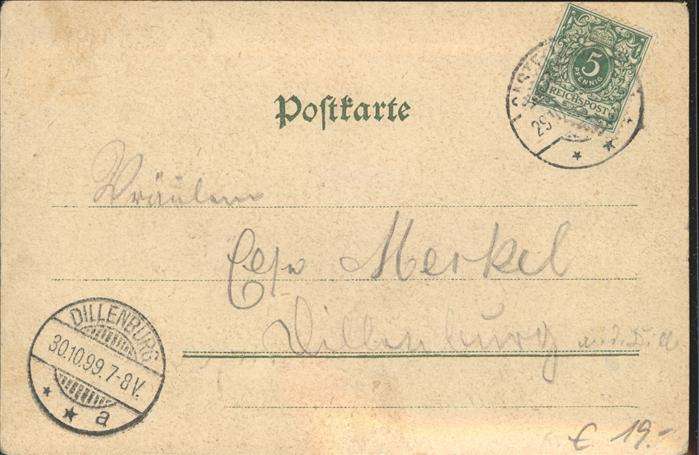 5
PFENNIG
REICHSPOST
29
Postkarte
Fräulein
Merkel
Dillenburg
DILLENBURG
30.10.99.7-8V.
* * a
€ 19.-